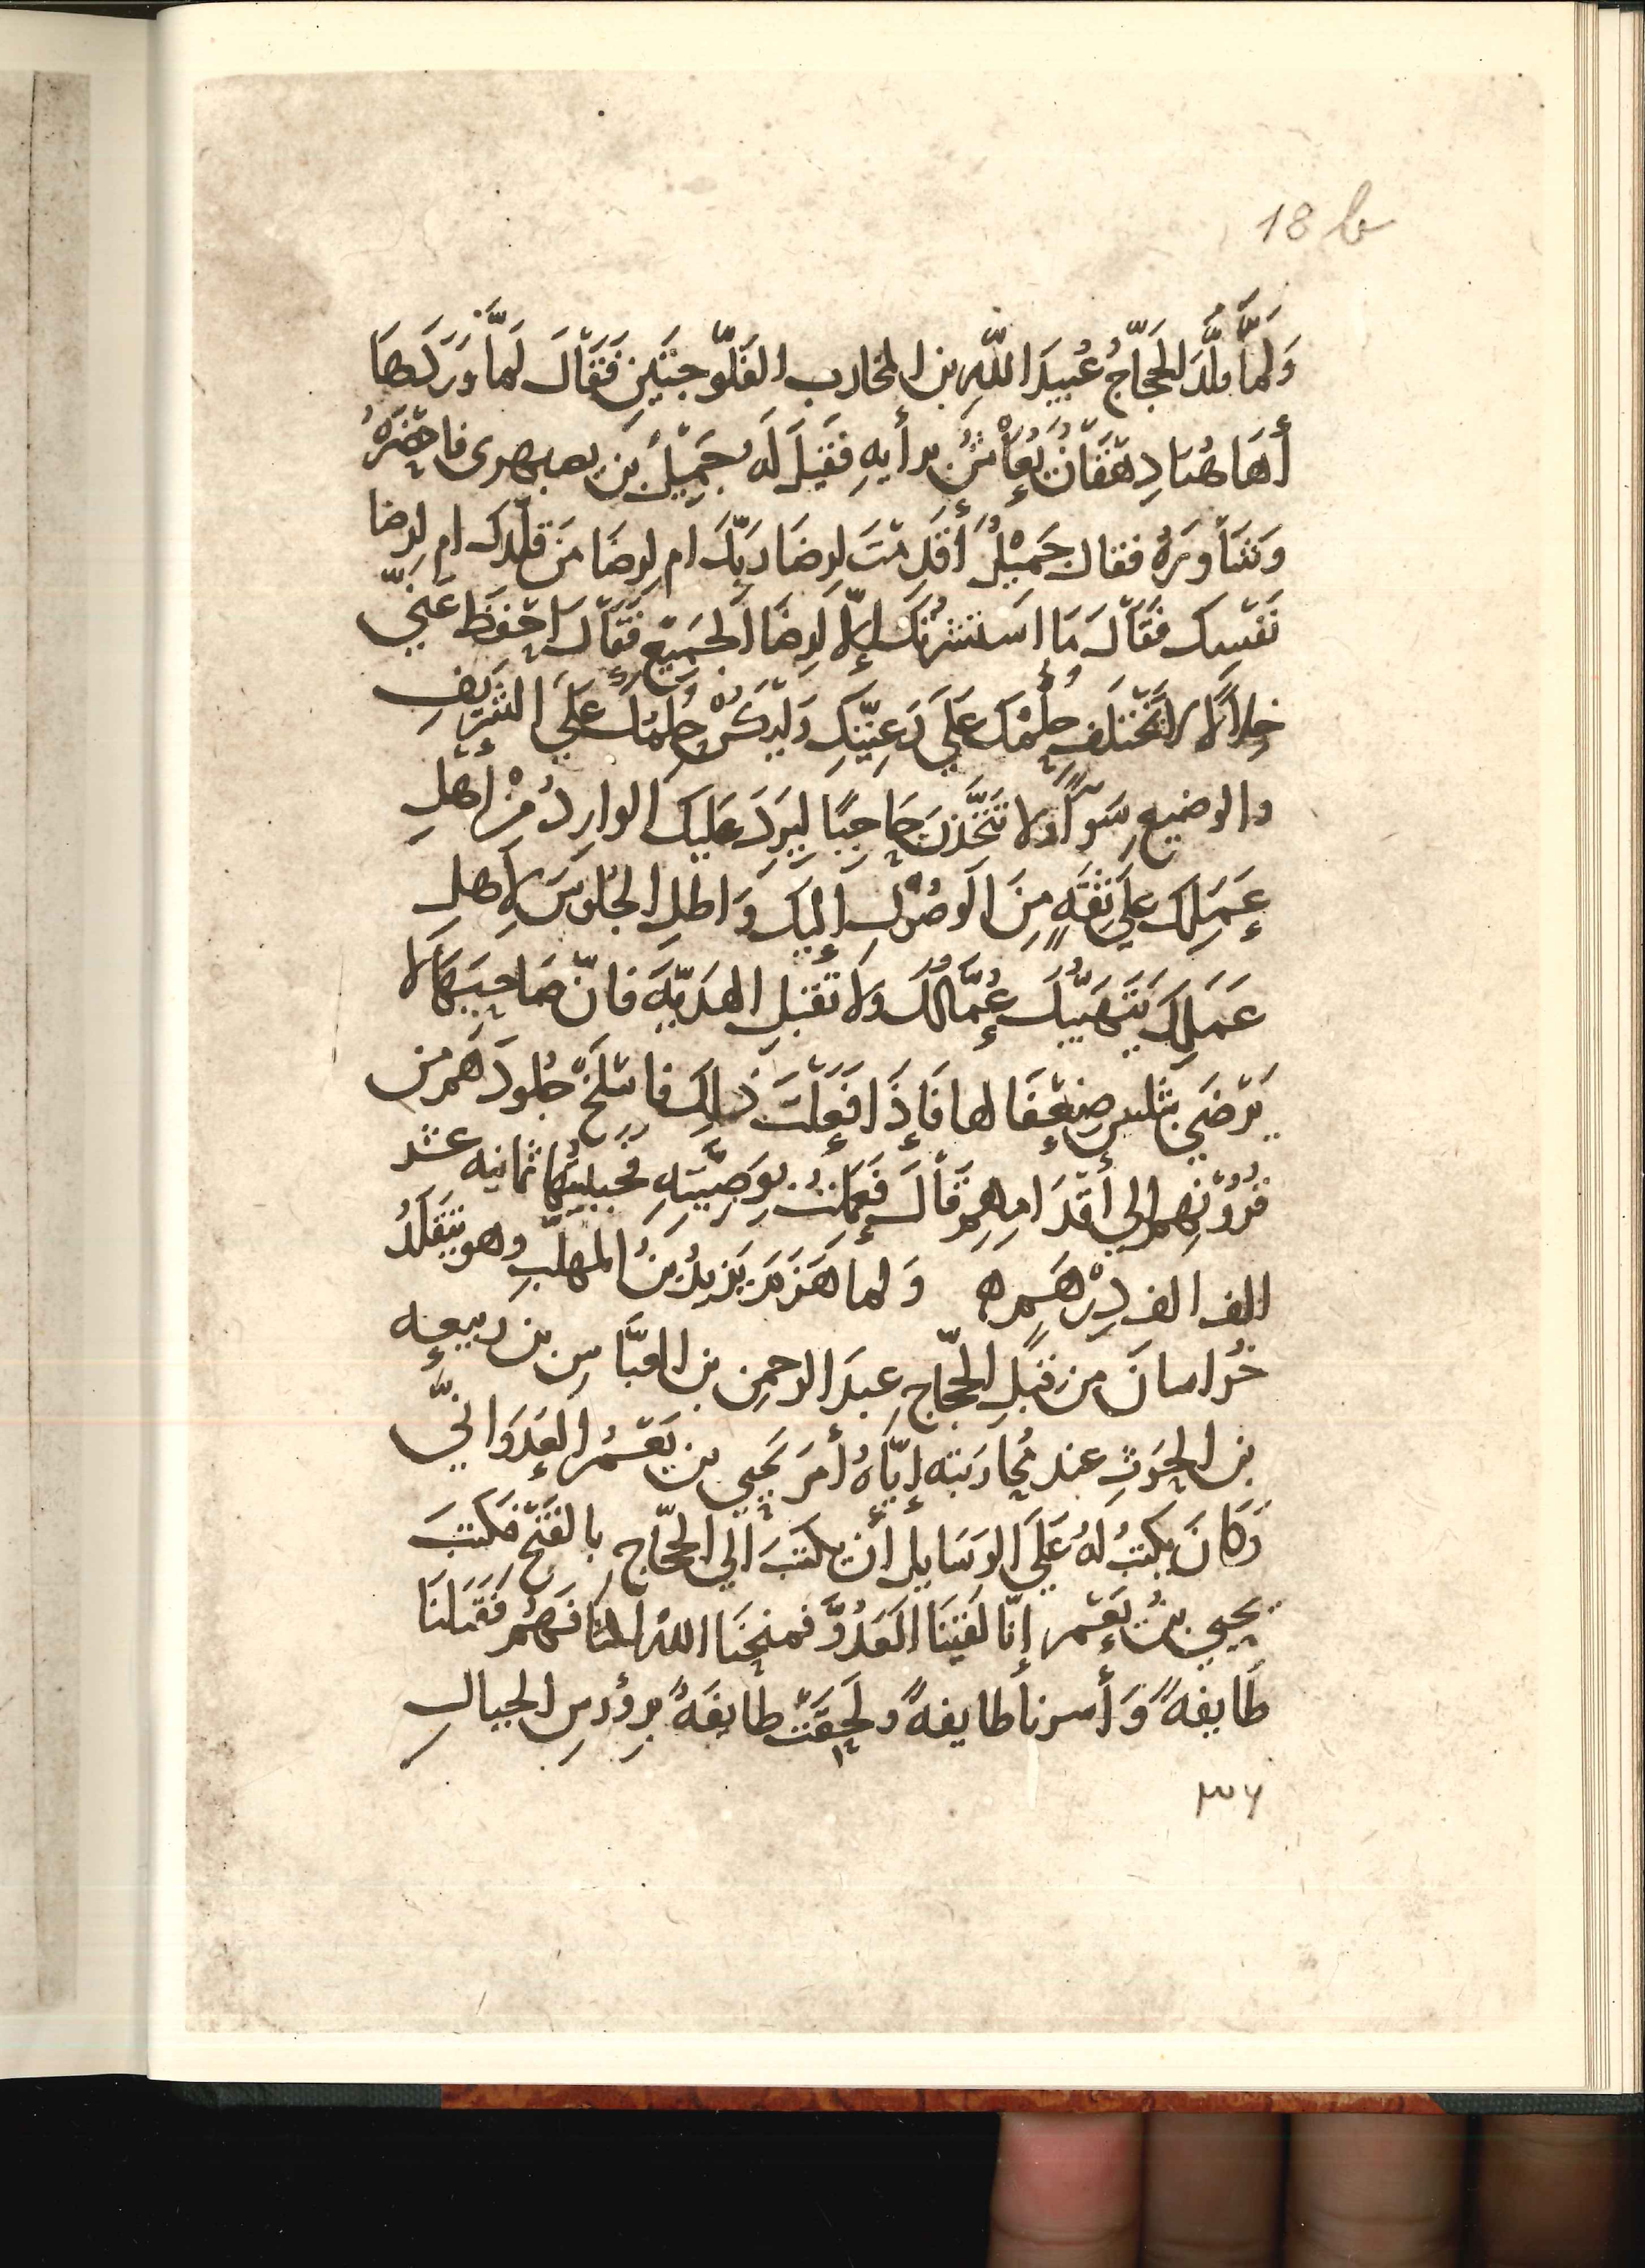 18 b
وَلَمَّا قَلَّدَ الحَجَّاجُ عُبيدَ اللّهِ بن المخارب الفَلّوجتَينِ فَقَالَ لَمَّا وَرَدَها
أهَاهُنَا دِهْقَانٌ يُعَاشُ برأيهِ فَقيلَ لَه جَمِيْلُ بن بصبهرى فاحْضَرَهُ
وَشَاوَرَهُ فقال جَمِيْلُ أقَدِمْتَ لِرضَا رَبِّكَ ام لِرضَا مَن قَلَّدك ام لِرضا
نَفْسِك فَقَالَ مَا اسْتَشَرتُكَ إلّا لِرضَا الجَمِيْعِ فَقَالَ احْفَظ عَنّي
خِلالًا لا تَخْتَلِف حُكْمُكَ عَلَي رَعِيّتِكِ وَليَكُنْ حُكْمُكَ عَلَي الشَّرِيْفِ
والوضيعِ سَوآً ولا تَتَّخِذَنَّ حَاجِبًا لِيَرِدَ عَليكَ الوارِدُ مِنْ أهْلِ
عَمَلِكَ علي ثِقَهٍ مِنَ الوصُوْلِ إليكَ وَاطِلِ الجُلوسَ لاِهلِ
عَمَلِكَ يَتَهَيّبْكَ عُمَّالُكَ ولا تَقْبَلِ الهَديّهَ فانّ صَاحِبَهَا لا
يَرْضَي بثلاثِينَ ضِعْفًا لها فَإذَا فَعَلْتَ ذَلِكَ فاسْلَخْ جُلودَهم من
فرُوْنِهم الي أقْدَامِهِم قَالَ فَعَملتُ بِوَصِيَّتِهِ فجَبَيتُها ثمانيه عشر
الف الف دِرْهَمٍ ه وَلما هَزَمَ يَزيدُ بنُ المهلّبِ وهو يتقَلّدُ
خُراسانَ من قِبَلِ الحجّاجِ عبدَ الرحمن بن العبَّاسِ بن ربيعه
بن الحرَثِ عند مُحاربته إيّاهُ أمَرَ يَحْيي بن يَعْمُر العَدوَانيّ
وَكانَ يكتبُ لهُ عَلَي الرَسَايلِ أن يكتبَ الي الحجّاجِ بالفَتحِ فكتبَ
يحيي بنُ يَعْمُر إنّا لَقِيْنَا العَدُوَّ فمنحَنَا اللهُ اكْتَافَهُمْ فَقَتَلنَا
طَايفَهً وَأسرنا طايفهً ولَحِقَتْ طايفَهٌ برؤوسِ الجبالِ
٣٦